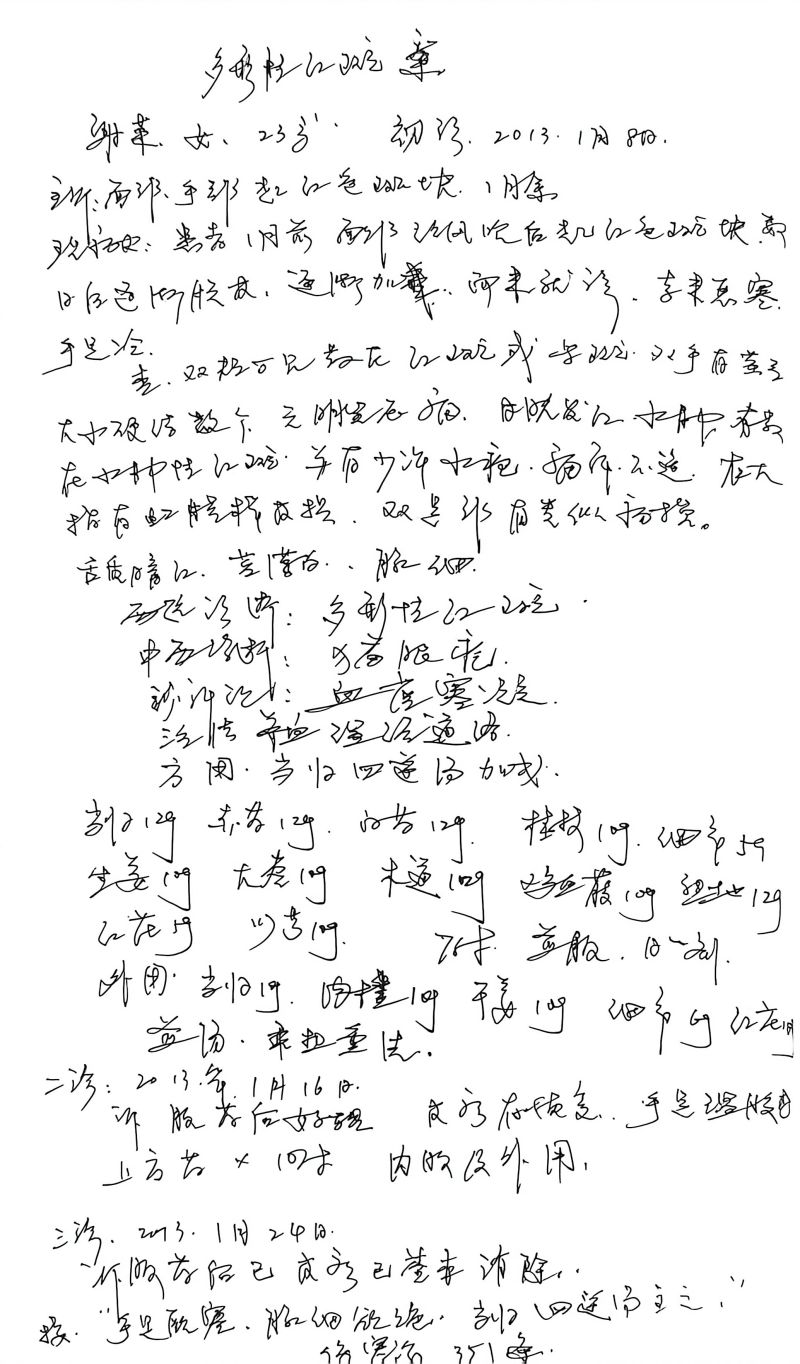 多形性红斑案
谢某. 女. 23岁. 初诊. 2013. 1月8日.
主诉: 面部. 手部起红色斑块. 1月余
现病史: 患者1月前面部经风吹后起红色斑块
日后逐渐加重. 而来就诊. 素来恶寒.
手足冷.
查. 双颊可见散在红斑或紫斑. 双手有蚕豆
大小硬结数个
在水肿性红斑. 并有少许水疱.
指有虹膜样皮损. 双足部有类似皮损。
舌质暗红. 苔薄白.. 脉细.
西医诊断: 多形性红斑.
中医诊断: 猫眼疮.
辨证: 血虚寒凝.
治法 养血温经通络.
方用. 当归四逆汤加减.
当归12g 赤芍12g. 白芍12g. 桂枝10g. 细辛5g
生姜10g 大枣10g 木通10g 鸡血藤10g 熟地12g
红花5g 川芎10g. 7付. 煎服. 日一剂.
外用. 当归10g. 肉桂10g 干姜10g 细辛6g 红花10g
煎汤. 乘热熏洗.
二诊: 2013.年.1月16日.
诉服药后好转
上方药×10付 内服及外用.
三诊. 2013. 1月24日.
诉服药后已皮疹已基本消除..
按. "手足厥寒. 脉细欲绝. 当归四逆汤主之."
伤寒论 351条.